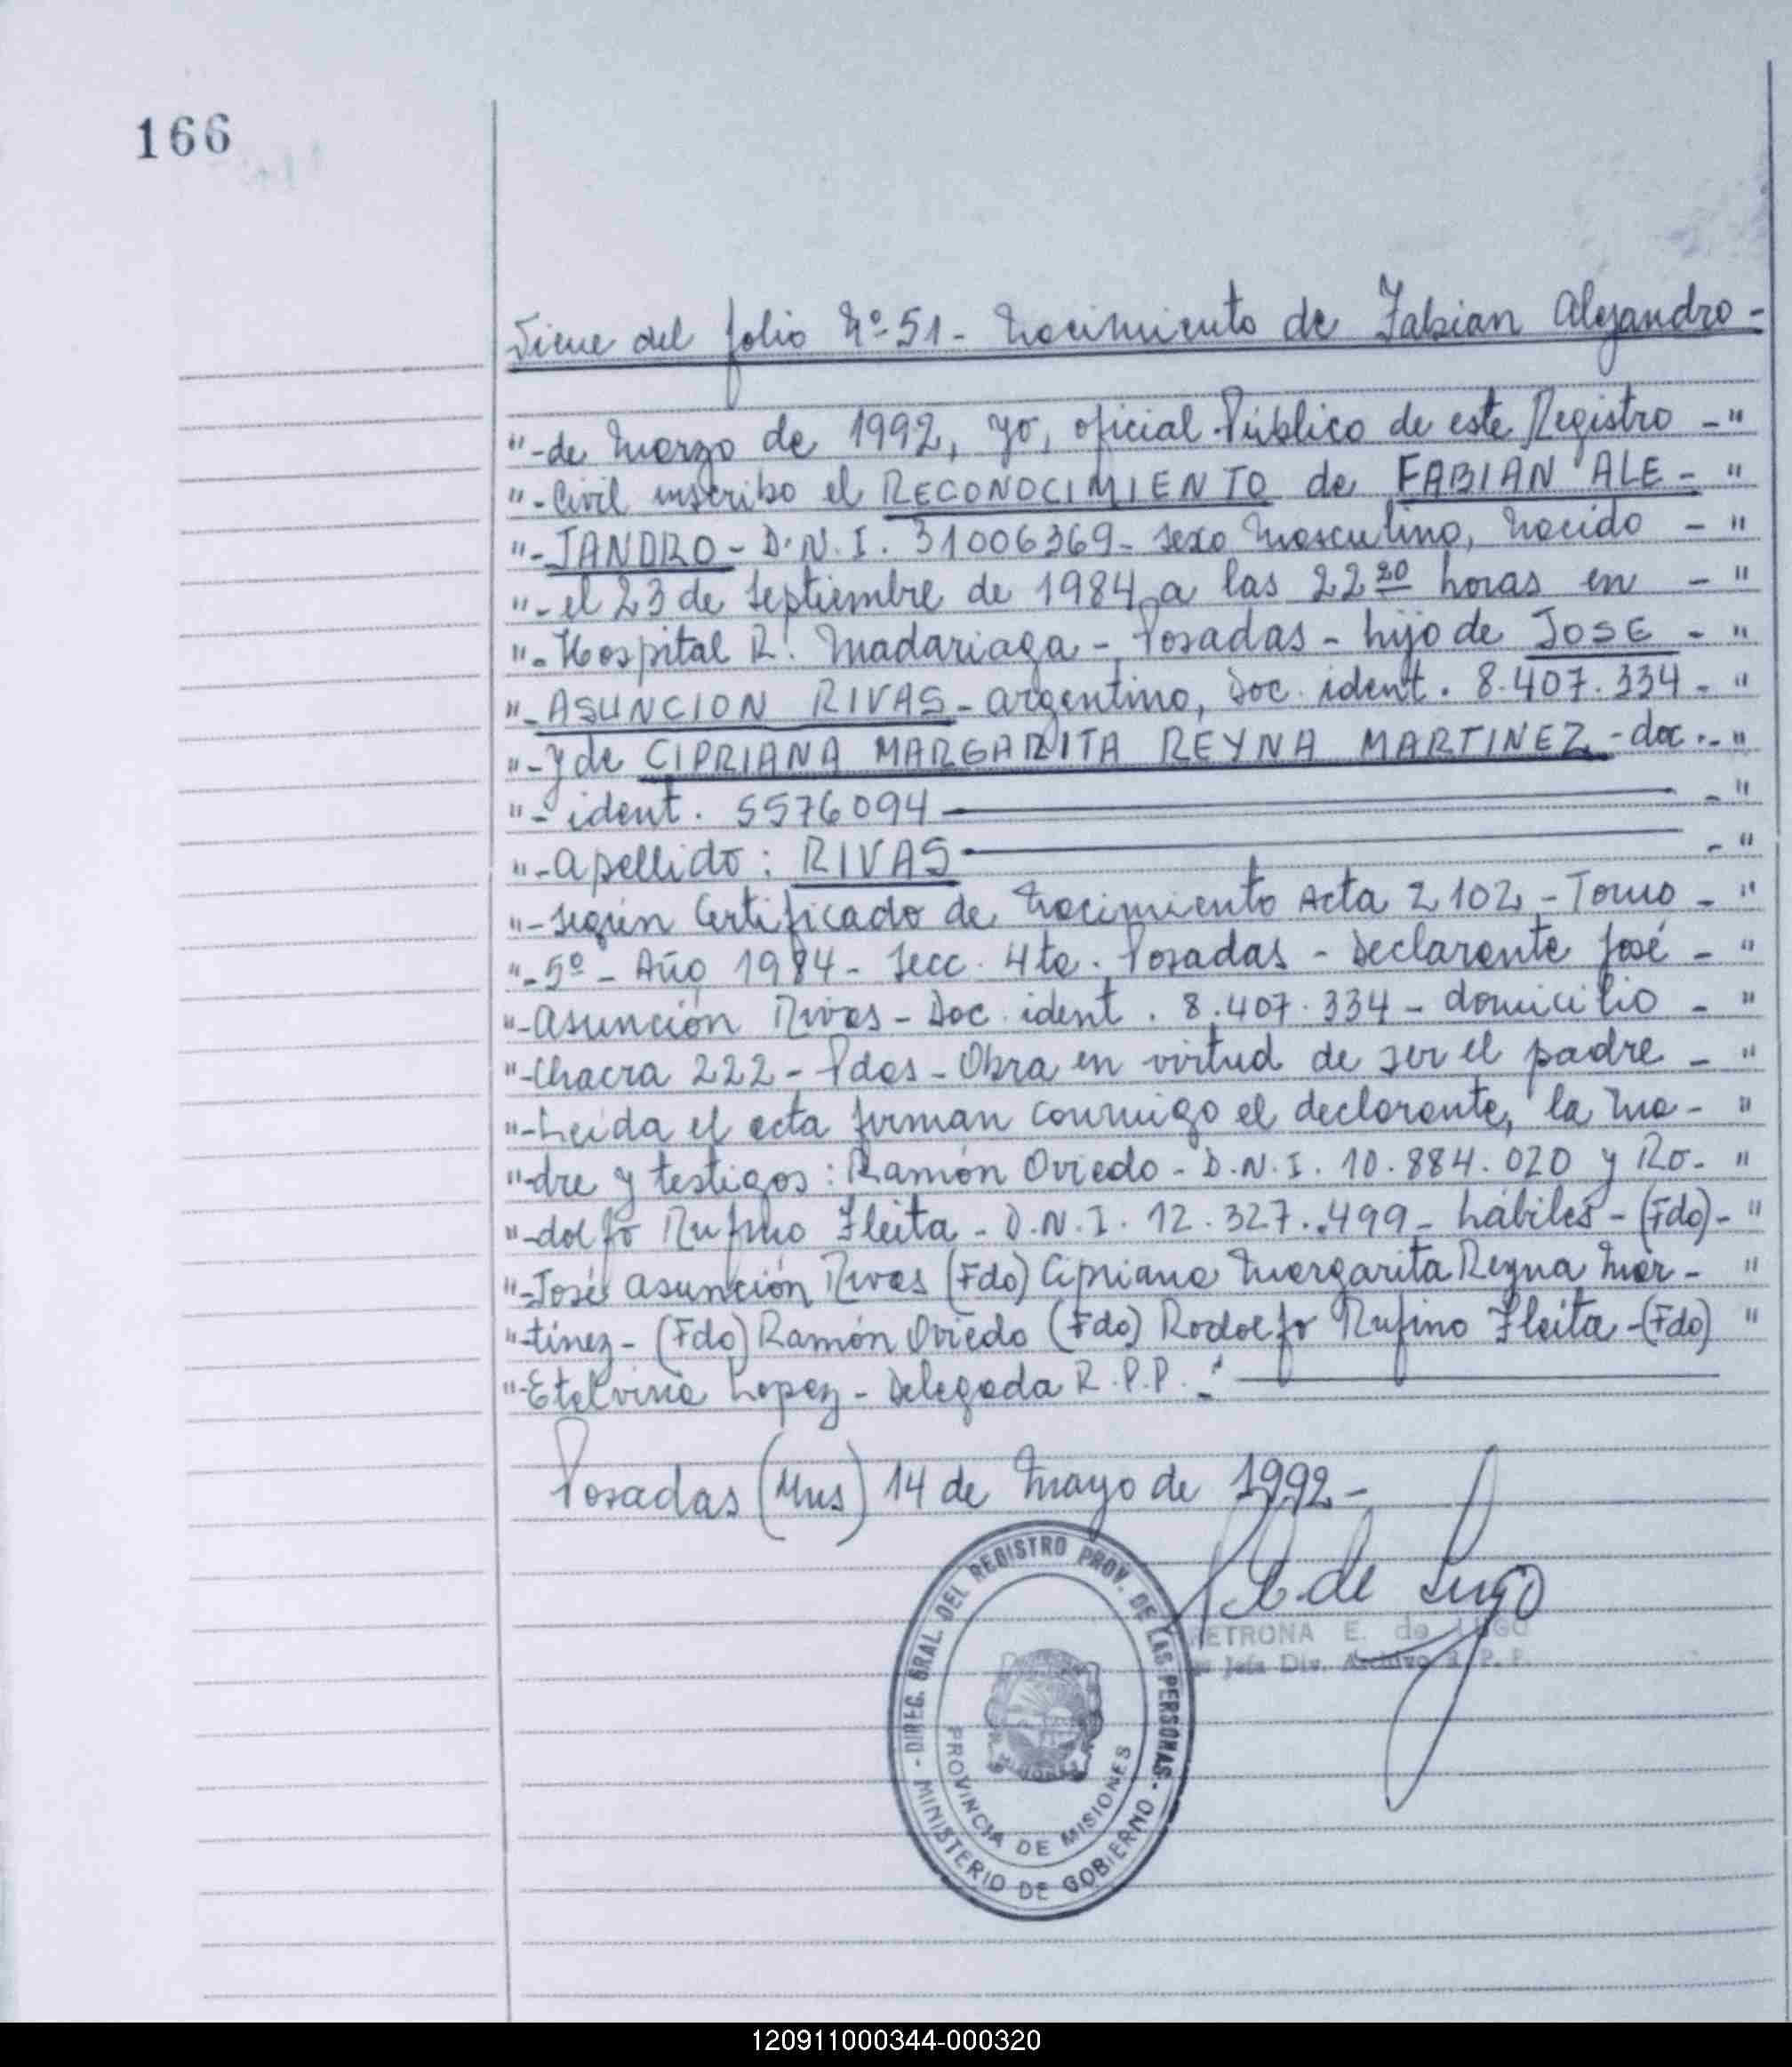 166
Viene del folio Nº 51 - Nacimiento de Fabian Alejandro -
"- de Marzo de 1992, yo, oficial Público de este Registro - "
"- Civil inscribo el RECONOCIMIENTO de FABIAN ALE - "
"- JANDRO - D.N.I. 31006369 - sexo Masculino, Nacido - "
"- el 23 de Septiembre de 1984 a las 22 20 horas en - "
"- Hospital R. Madariaga - Posadas - hijo de JOSE - "
"- ASUNCION RIVAS - argentino, Doc. ident. 8.407.334 - "
"- y de CIPRIANA MARGARITA REYNA MARTINEZ - doc. - "
"- ident. 5576094 - "
"- apellido: RIVAS - "
"- según Certificado de Nacimiento Acta 2102 - Tomo - "
"- 5º - Año 1984 - Secc. 4ta. Posadas - Declarante José - "
"- Asunción Rivas - Doc. ident. 8.407.334 - domicilio - "
"- Chacra 222 - Pdas - Obra en virtud de ser el padre - "
"- Leida el acta firman conmigo el declarante, la Ma - "
"- dre y testigos: Ramón Oviedo - D.N.I. 10.884.020 y Ro - "
"- dolfo Rufino Fleita - D.N.I. 12.327.499 - hábiles - (Fdo) - "
"- José Asunción Rivas (Fdo) Cipriana Margarita Reyna Mar - "
"- tinez - (Fdo) Ramón Oviedo (Fdo) Rodolfo Rufino Fleita - (Fdo) "
"- Etelvina Lopez - Delegada R.P.P. -
Posadas (Mns) 14 de Mayo de 1992 -
P. E. de Lugo
PETRONA E. de LUGO
Jefa Div. Archivo R.P.P.
- DIREC. GRAL. DEL REGISTRO PROV. DE LAS PERSONAS -
MINISTERIO DE GOBIERNO
PROVINCIA DE MISIONES
120911000344-000320